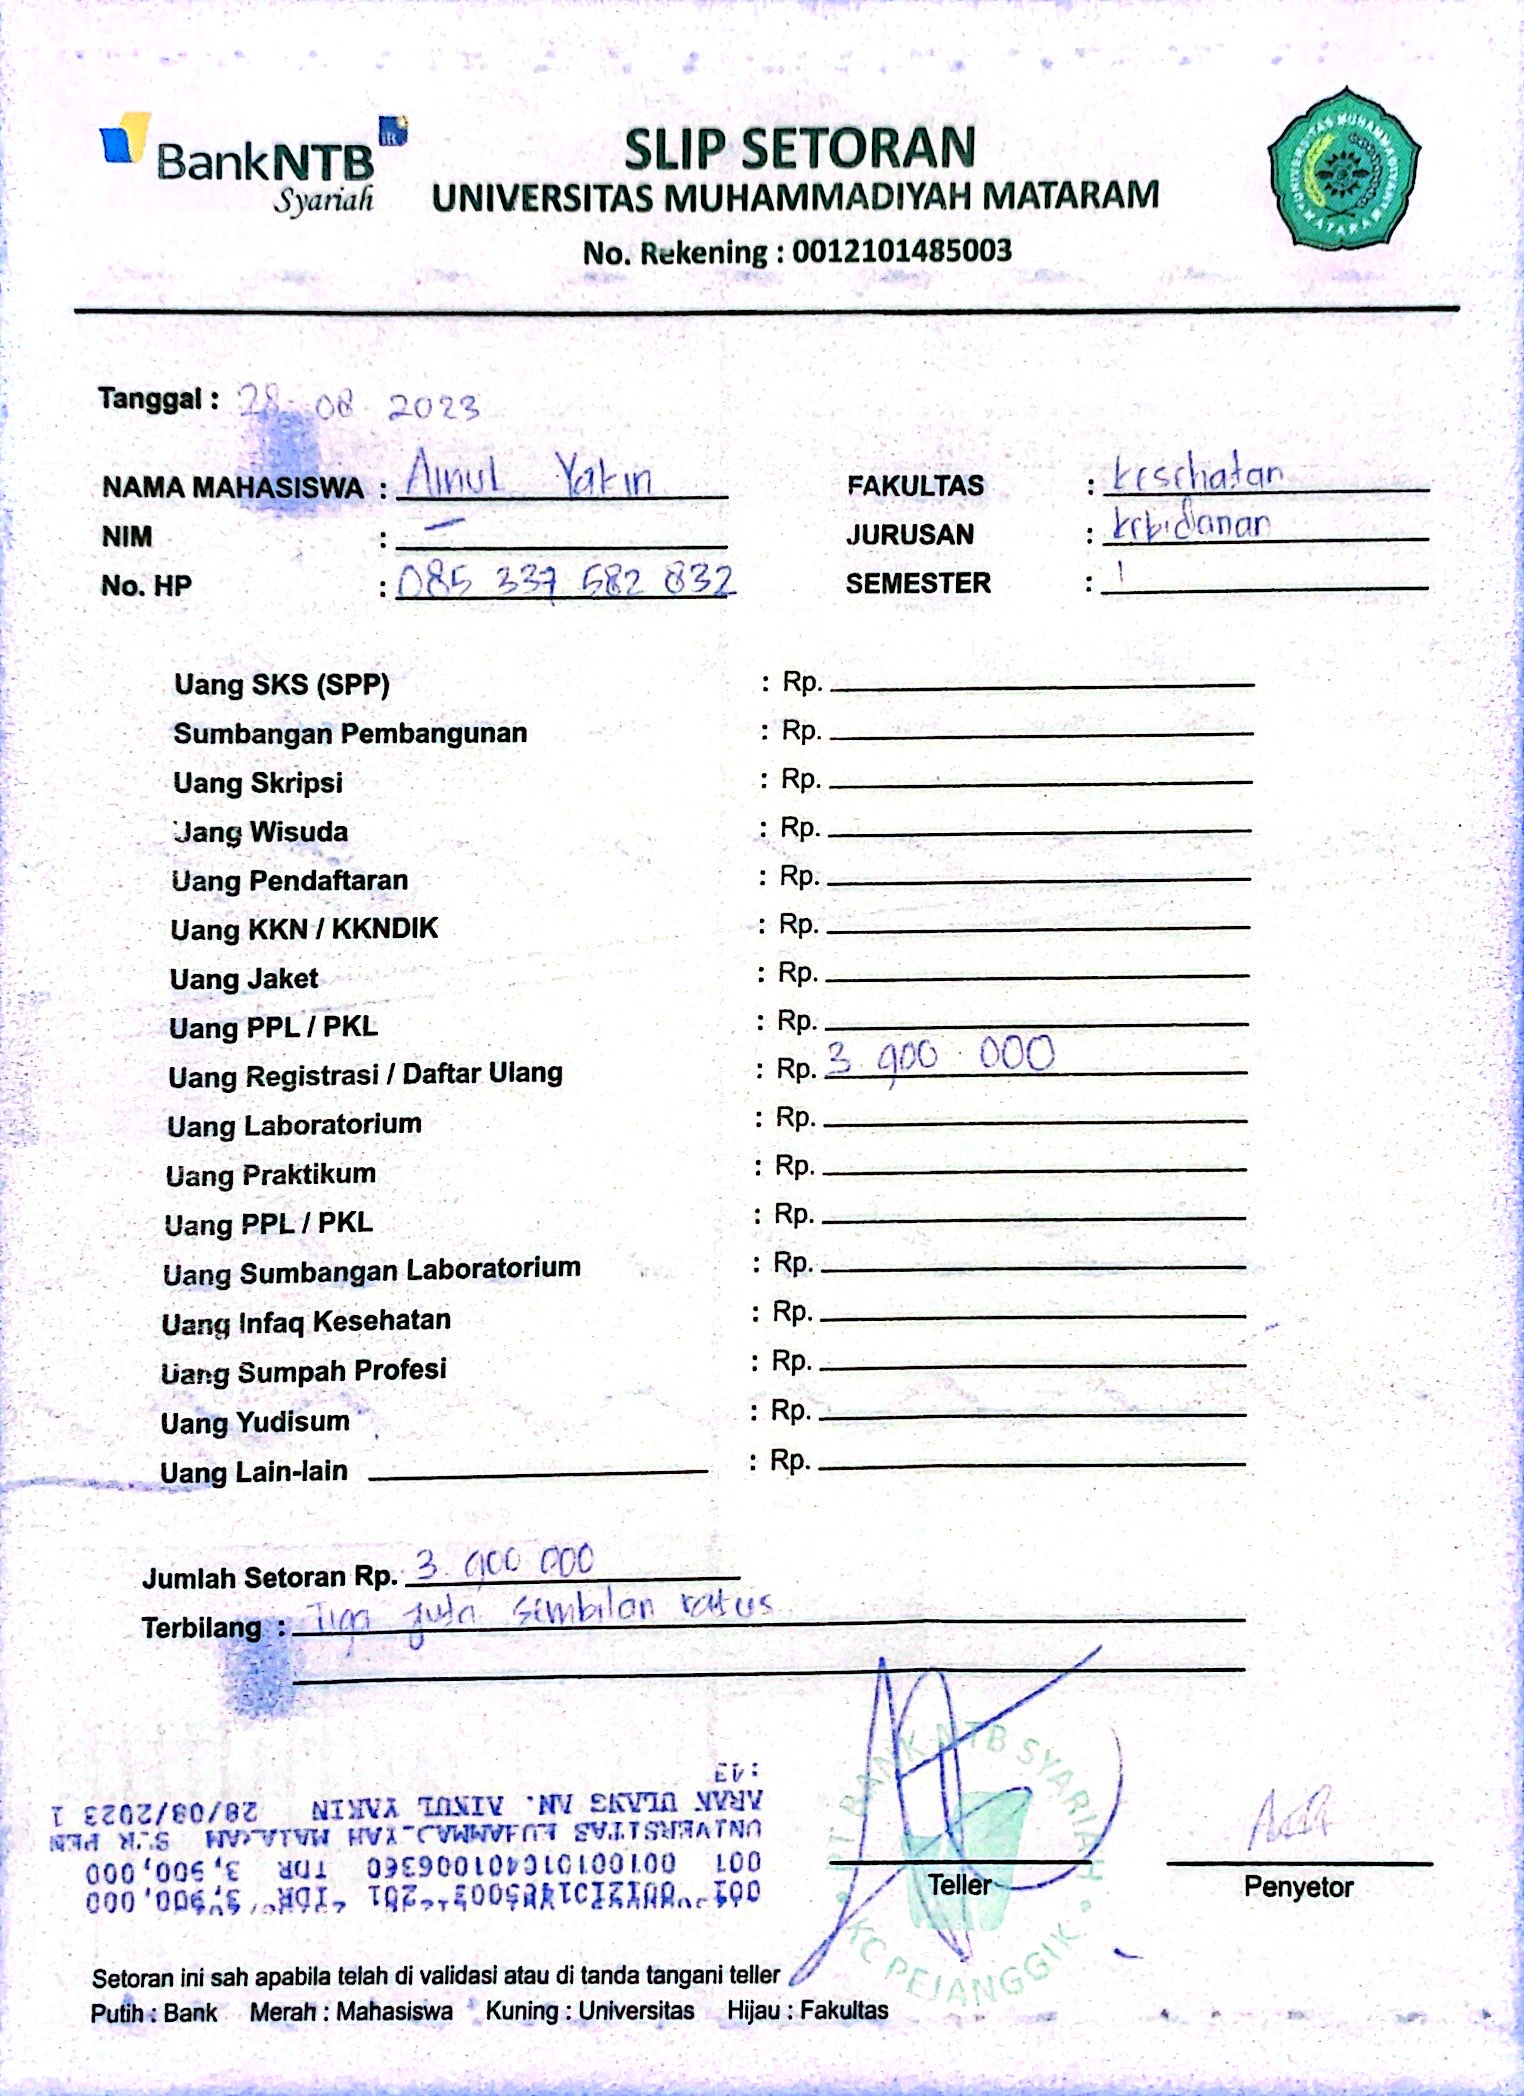 BankNTB
Syariah
SLIP SETORAN
UNIVERSITAS MUHAMMADIYAH MATARAM
No. Rekening : 0012101485003
Tanggal : 28-08 2023
NAMA MAHASISWA : Ainul Yakin
NIM : –
No. HP : 085 337 582 832
FAKULTAS : Kesehatan
JURUSAN : Kebidanan
SEMESTER : 1
Uang SKS (SPP) : Rp.
Sumbangan Pembangunan : Rp.
Uang Skripsi : Rp.
Uang Wisuda : Rp.
Uang Pendaftaran : Rp.
Uang KKN / KKNDIK : Rp.
Uang Jaket : Rp.
Uang PPL / PKL : Rp.
Uang Registrasi / Daftar Ulang : Rp. 3.900.000
Uang Laboratorium : Rp.
Uang Praktikum : Rp.
Uang PPL / PKL : Rp.
Uang Sumbangan Laboratorium : Rp.
Uang Infaq Kesehatan : Rp.
Uang Sumpah Profesi : Rp.
Uang Yudisum : Rp.
Uang Lain-lain : Rp.
Jumlah Setoran Rp. 3.900 000
Terbilang : Tiga juta sembilan ratus
001 IDR 3,900,000
001 001001010401006360 IDR 3,900,000
UNIVERSITAS MUHAMMADIYAH MATARAM PEN
ULANG AN. AINUL YAKIN 28/08/2023 1
:43
PT BANK NTB SYARIAH
KC PEJANGGIK
Teller
Penyetor
Setoran ini sah apabila telah di validasi atau di tanda tangani teller
Putih : Bank Merah : Mahasiswa Kuning : Universitas Hijau : Fakultas